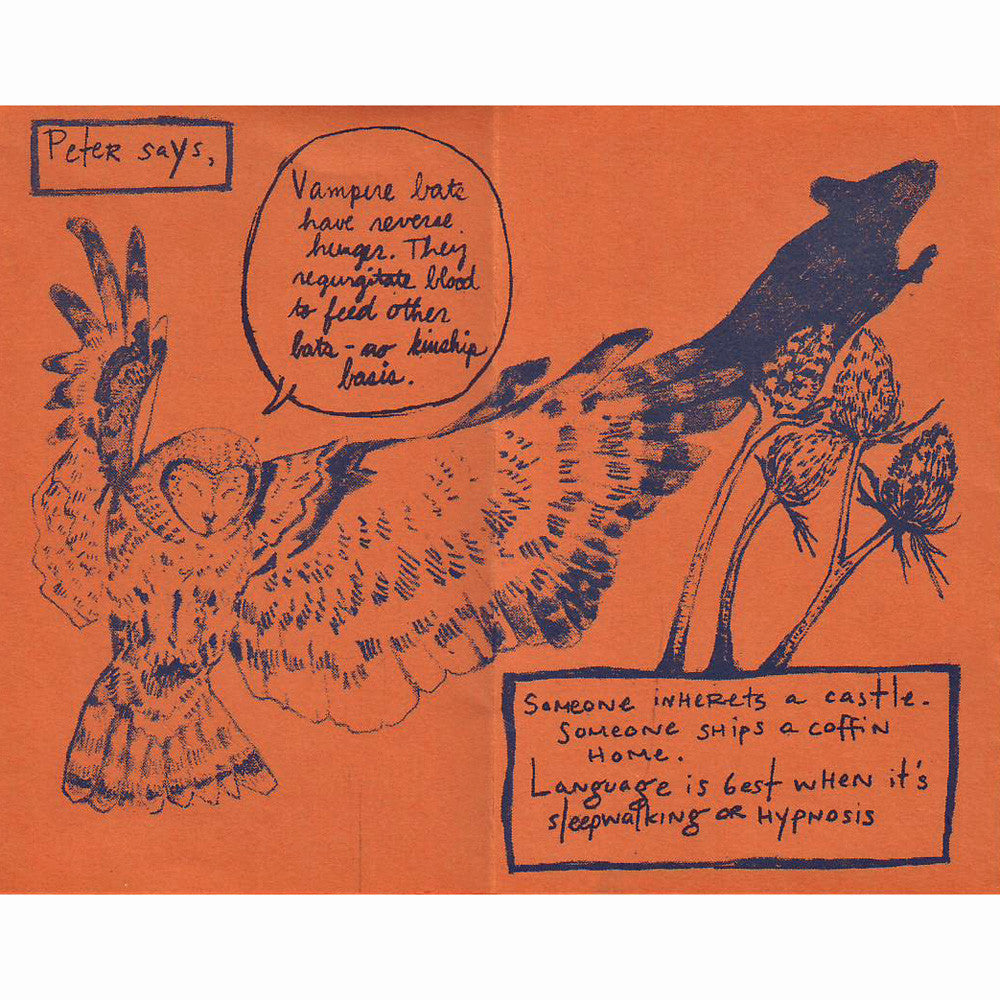 Peter says,
Vampire bats
have reverse
hunger. They
regurgitate blood
to feed other
bats - no kinship
basis.
Someone inherets a castle.
Someone ships a coffin
home.
Language is best when it's
sleepwalking or hypnosis